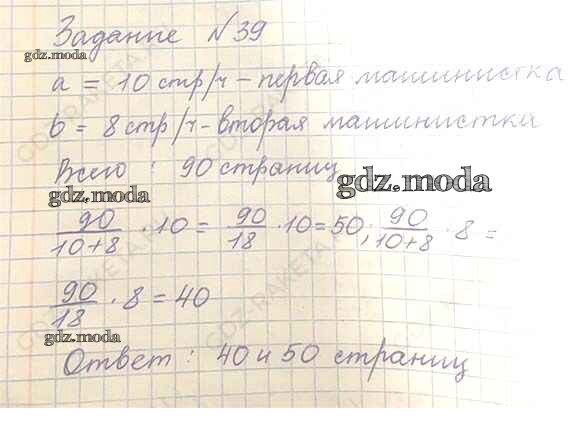 Задание №39
gdz.moda
a = 10 стр/ч - первая машинистка
b = 8 стр/ч - вторая машинистка
Всего : 90 страниц
gdz.moda
gdz.moda
90/10+8 · 10 = 90/18 · 10 = 50; 90/10+8 · 8 =
90/18 · 8 = 40
gdz.moda
Ответ : 40 и 50 страниц